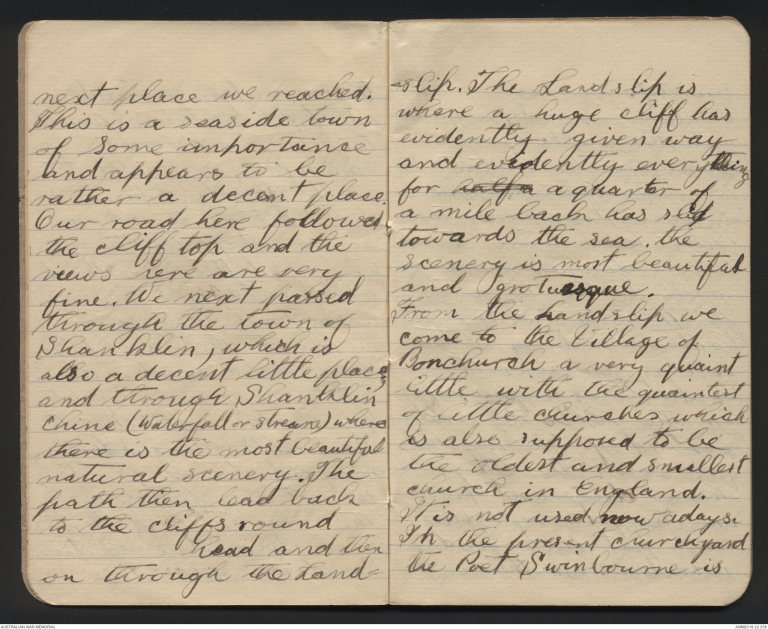 next place we reached.
This is a seaside town
of some importance
and appears to be
rather a decent place.
Our road here followed
the cliff top and the
views here are very
fine. We next passed
through the town of
Shanklin, which is
also a decent little place
and through Shanklin
Chine (Waterfall or stream) where
there is the most beautiful
natural scenery. The
path then lead back
to the cliffs round
head and then
on through the Land-
-slip. The Landslip is
where a huge cliff has
evidently given way
and evidently everything
for half a a quarter of
a mile back has slid
towards the sea. the
scenery is most beautiful
and grotuesque.
From the Landslip we
come to the Village of
Bonchurch a very quaint
little with the quaintest
of little churches which
is also supposed to be
the oldest and smallest
church in England.
It is not used now adays.
In the present churchyard
the Poet Swinbourne is
AUSTRALIAN WAR MEMORIAL